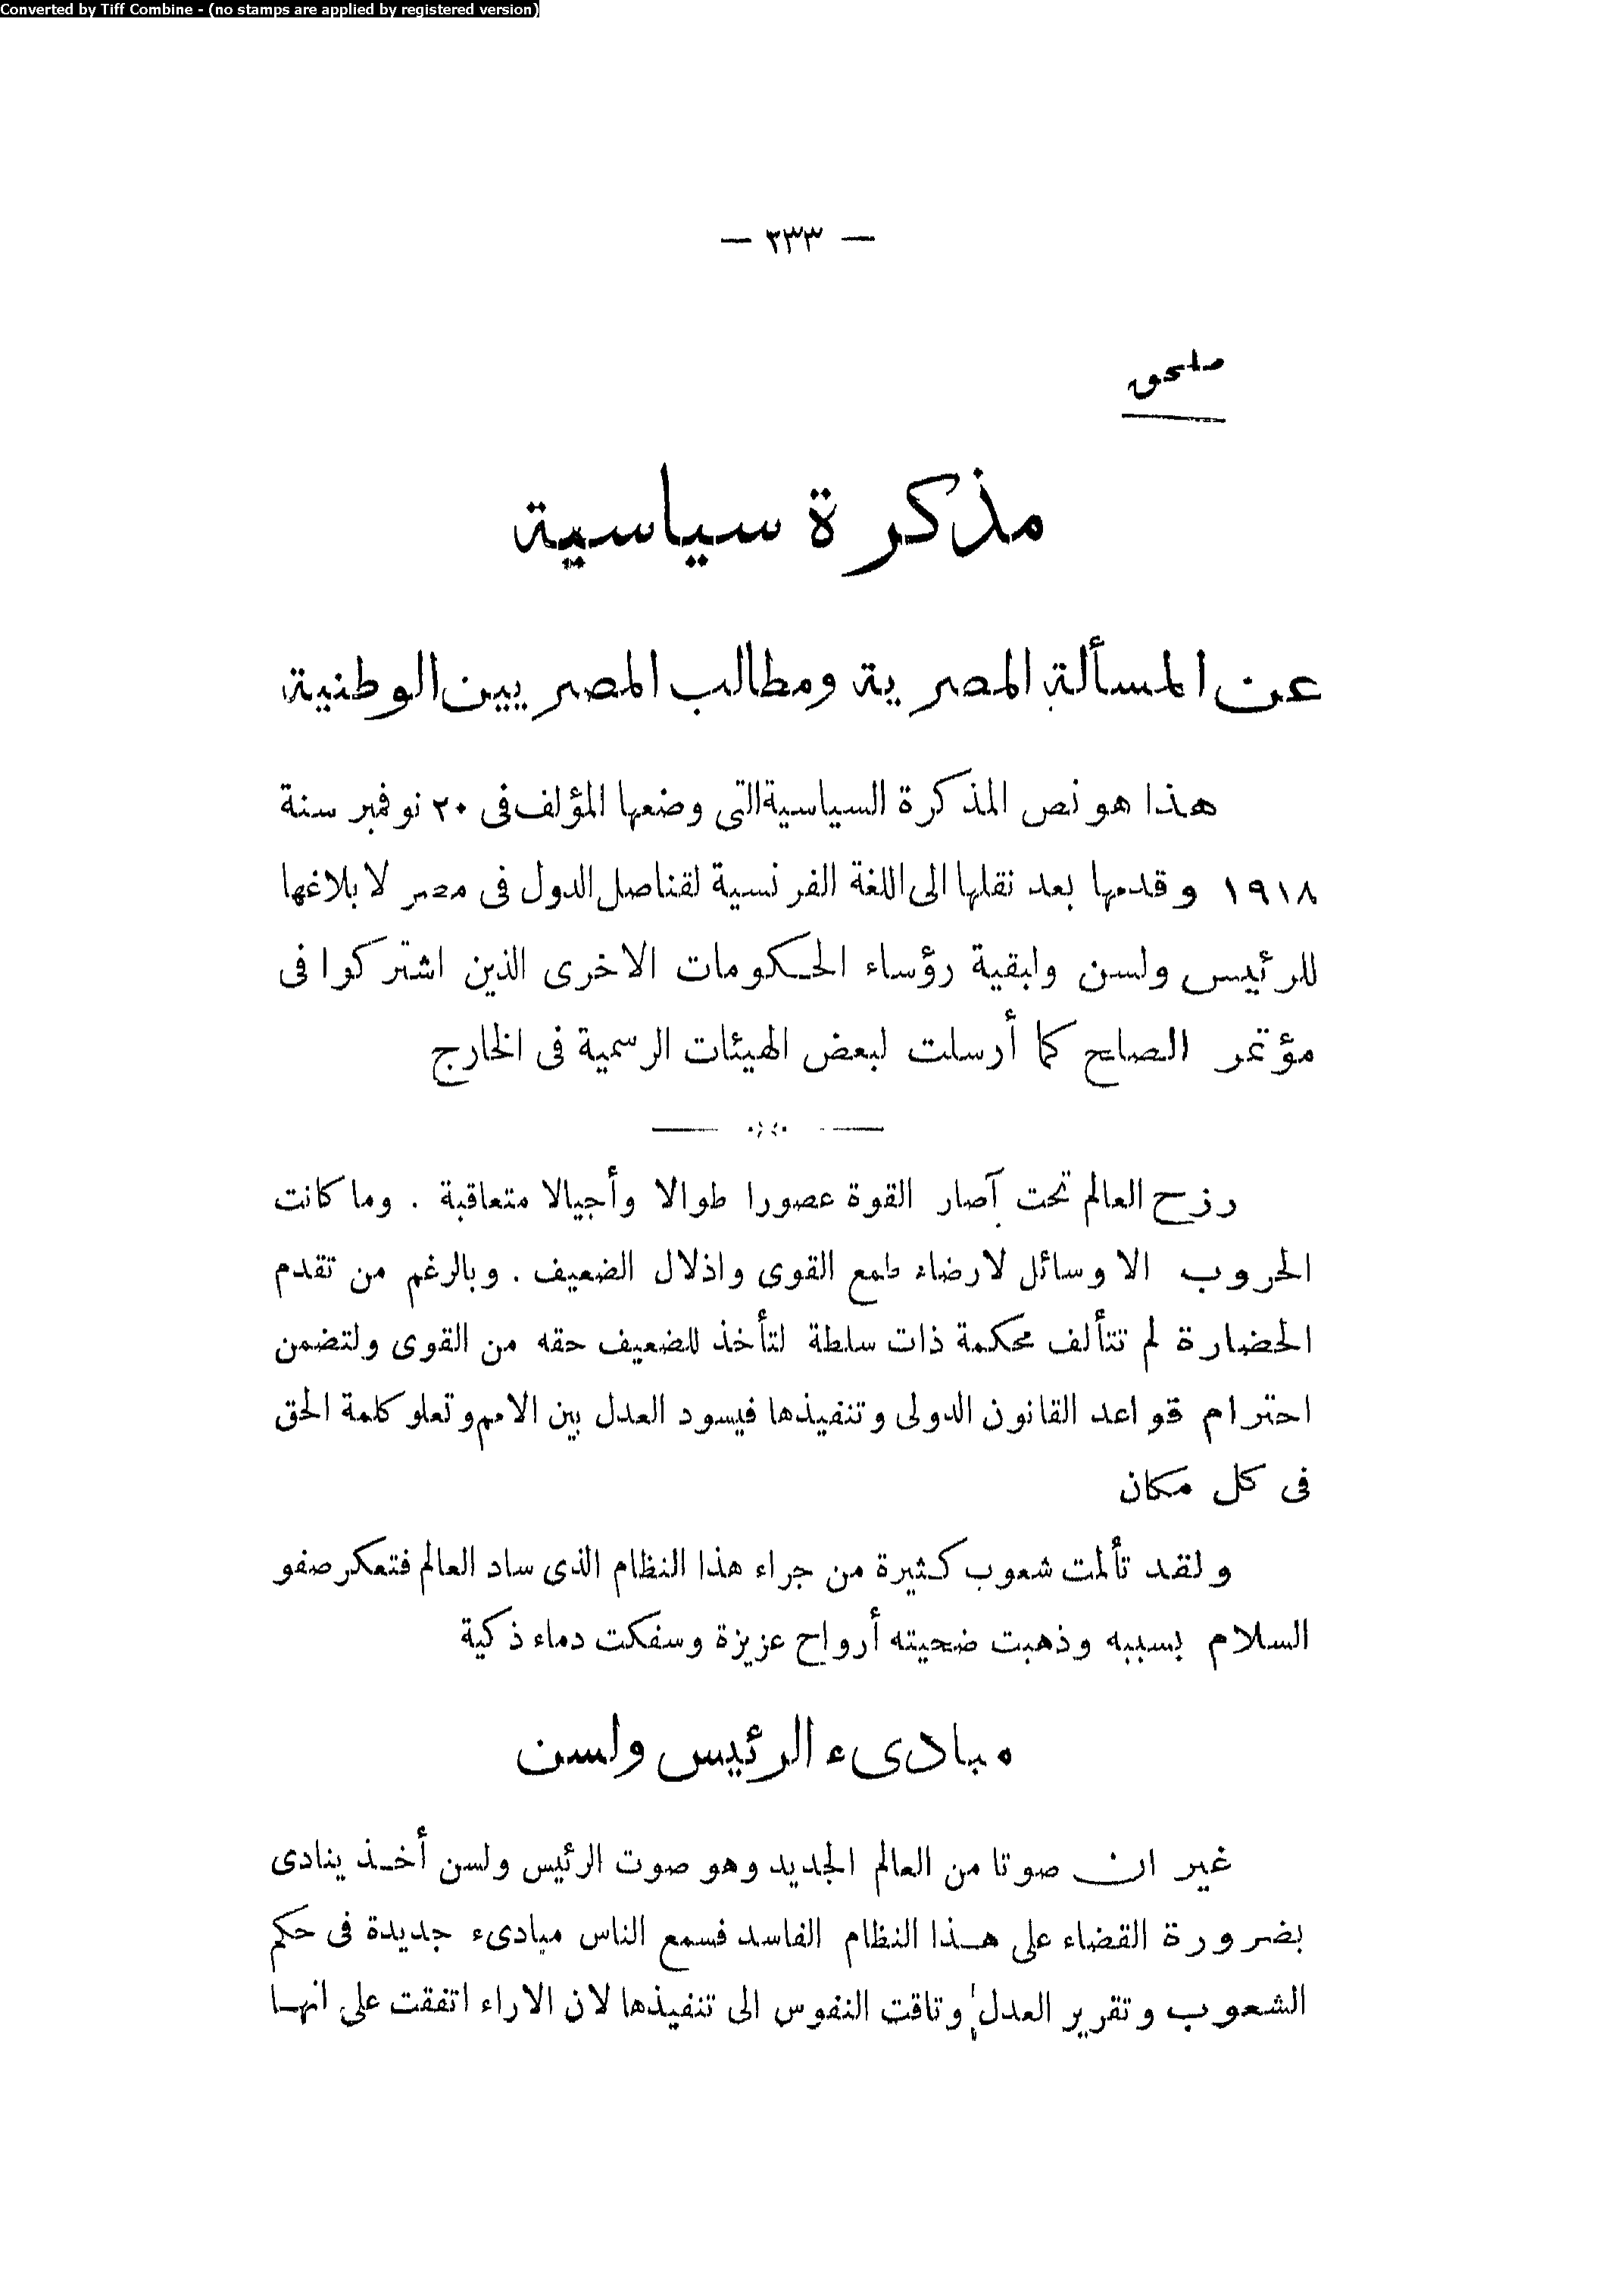 Converted by Tiff Combine - (no stamps are applied by registered version)
— ٢٣٣ —
ملحق
مذكرة سياسية
عن المسألة المصرية ومطالب المصريين الوطنية
هذا هو نص المذكرة السياسية التى وضعها المؤلف فى ٢٠ نوفمبر سنة
١٩١٨ وقدمها بعد نقلها الى اللغة الفرنسية لقناصل الدول فى مصر لابلاغها
للرئيس ولسن ولبقية رؤساء الحكومات الاخرى الذين اشتركوا فى
مؤتمر الصلح كما أرسلت لبعض الهيئات الرسمية فى الخارج
رزح العالم تحت آصار القوة عصورا طوالا وأجيالا متعاقبة . وما كانت
الحروب الا وسائل لارضاء طمع القوى واذلال الضعيف . وبالرغم من تقدم
الحضارة لم تتألف محكمة ذات سلطة لتأخذ للضعيف حقه من القوى ولتضمن
احترام قواعد القانون الدولى وتنفيذها فيسود العدل بين الامم وتعلو كلمة الحق
فى كل مكان
ولقد تألمت شعوب كثيرة من جراء هذا النظام الذى ساد العالم فتعكر صفو
السلام بسببه وذهبت ضحيته أرواح عزيزة وسفكت دماء ذكية
مبادىء الرئيس ولسن
غير ان صوتا من العالم الجديد وهو صوت الرئيس ولسن أخذ ينادى
بضرورة القضاء على هذا النظام الفاسد فسمع الناس مبادىء جديدة فى حكم
الشعوب وتقرير العدل وتاقت النفوس الى تنفيذها لان الاراء اتفقت على انها